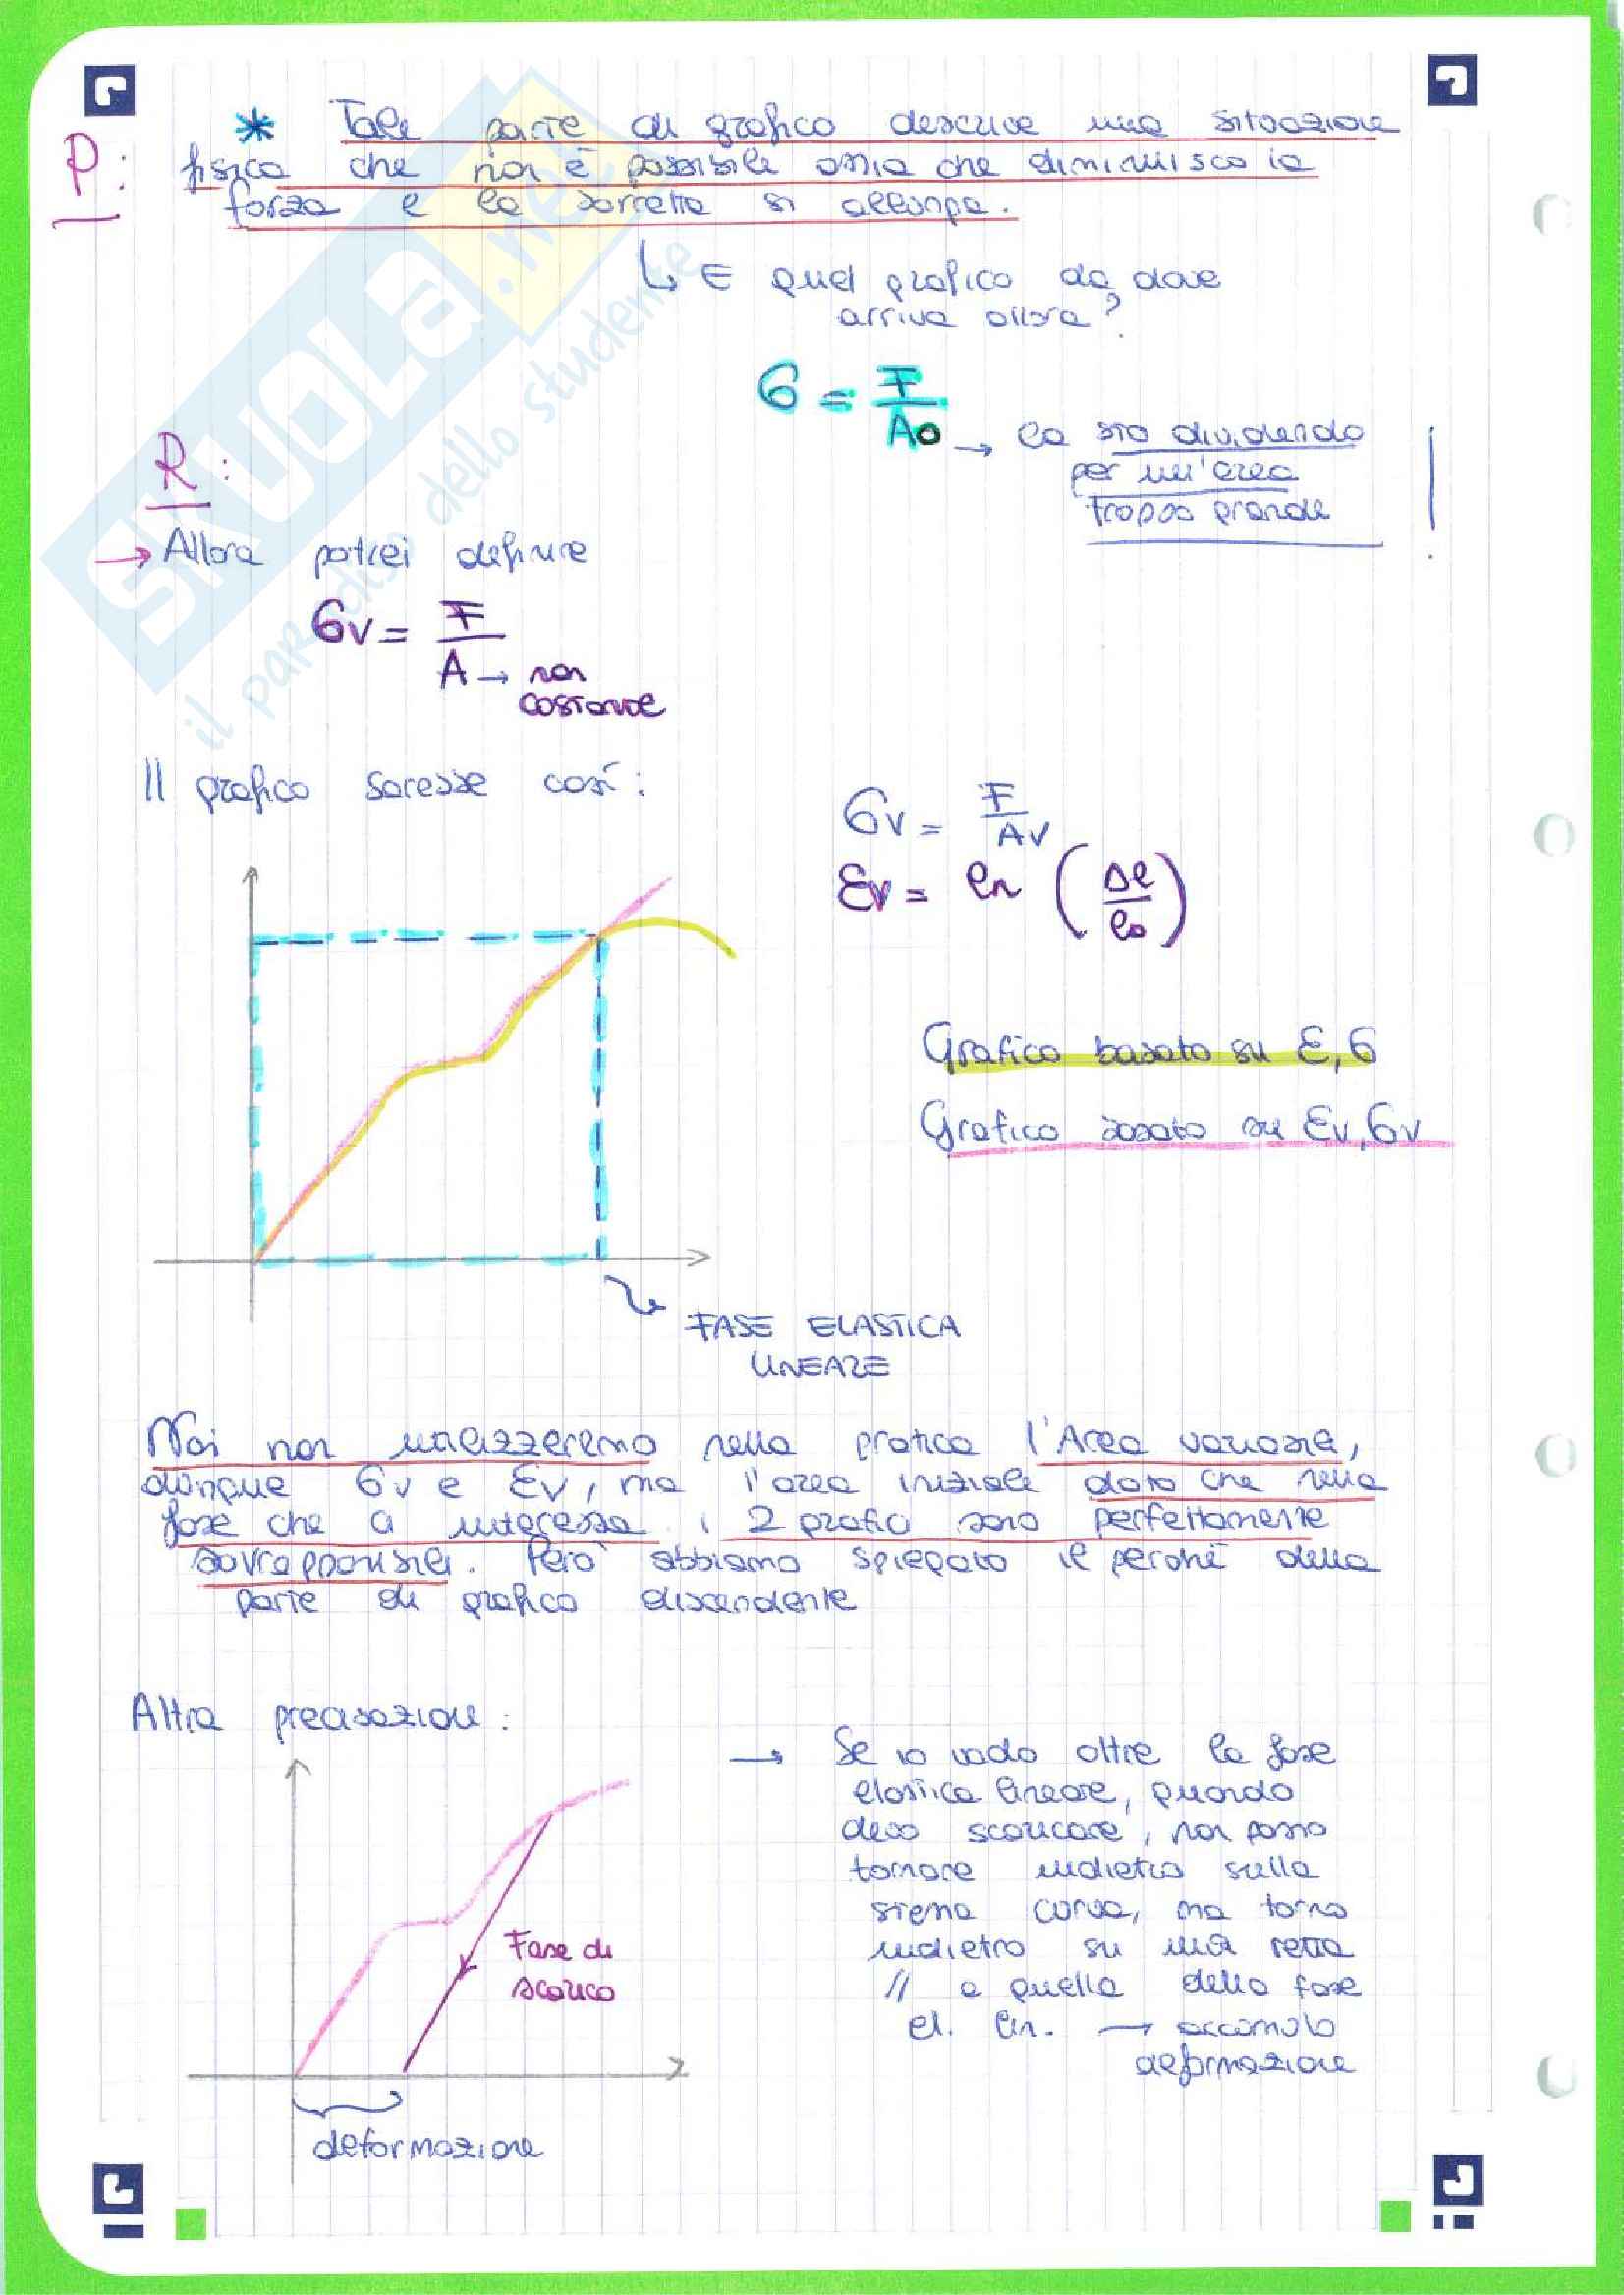 P:
* Tale parte di grafico descrive una situazione
fisica che non è possibile ossia che diminuisco la
forza e la barretta si allunga.
↳ E quel grafico da dove
arriva allora?
σ = F / A0 → la sto dividendo
per un'area
troppo grande !
R:
→ Allora potrei definire
σv = F / A → non
costante
Il grafico sarebbe così:
σv = F / Av
εv = ln (Δl / l0)
Grafico basato su ε, σ
Grafico basato su εv, σv
FASE ELASTICA
LINEARE
Noi non utilizzeremo nella pratica l'Area variabile,
dunque σv e εv, ma l'area iniziale dato che nella
fase che ci interessa i 2 grafici sono perfettamente
sovrapponibili. Però abbiamo spiegato il perché della
parte di grafico discendente
Altra precisazione:
→ Se io vado oltre la fase
elastica lineare, quando
devo scaricare, non posso
tornare indietro sulla
stessa curva, ma torno
indietro su una retta
// a quella della fase
el. lin. → accumulo
deformazione
Fase di
scarico
deformazione
SKUOLA.net
il paradiso dello studente